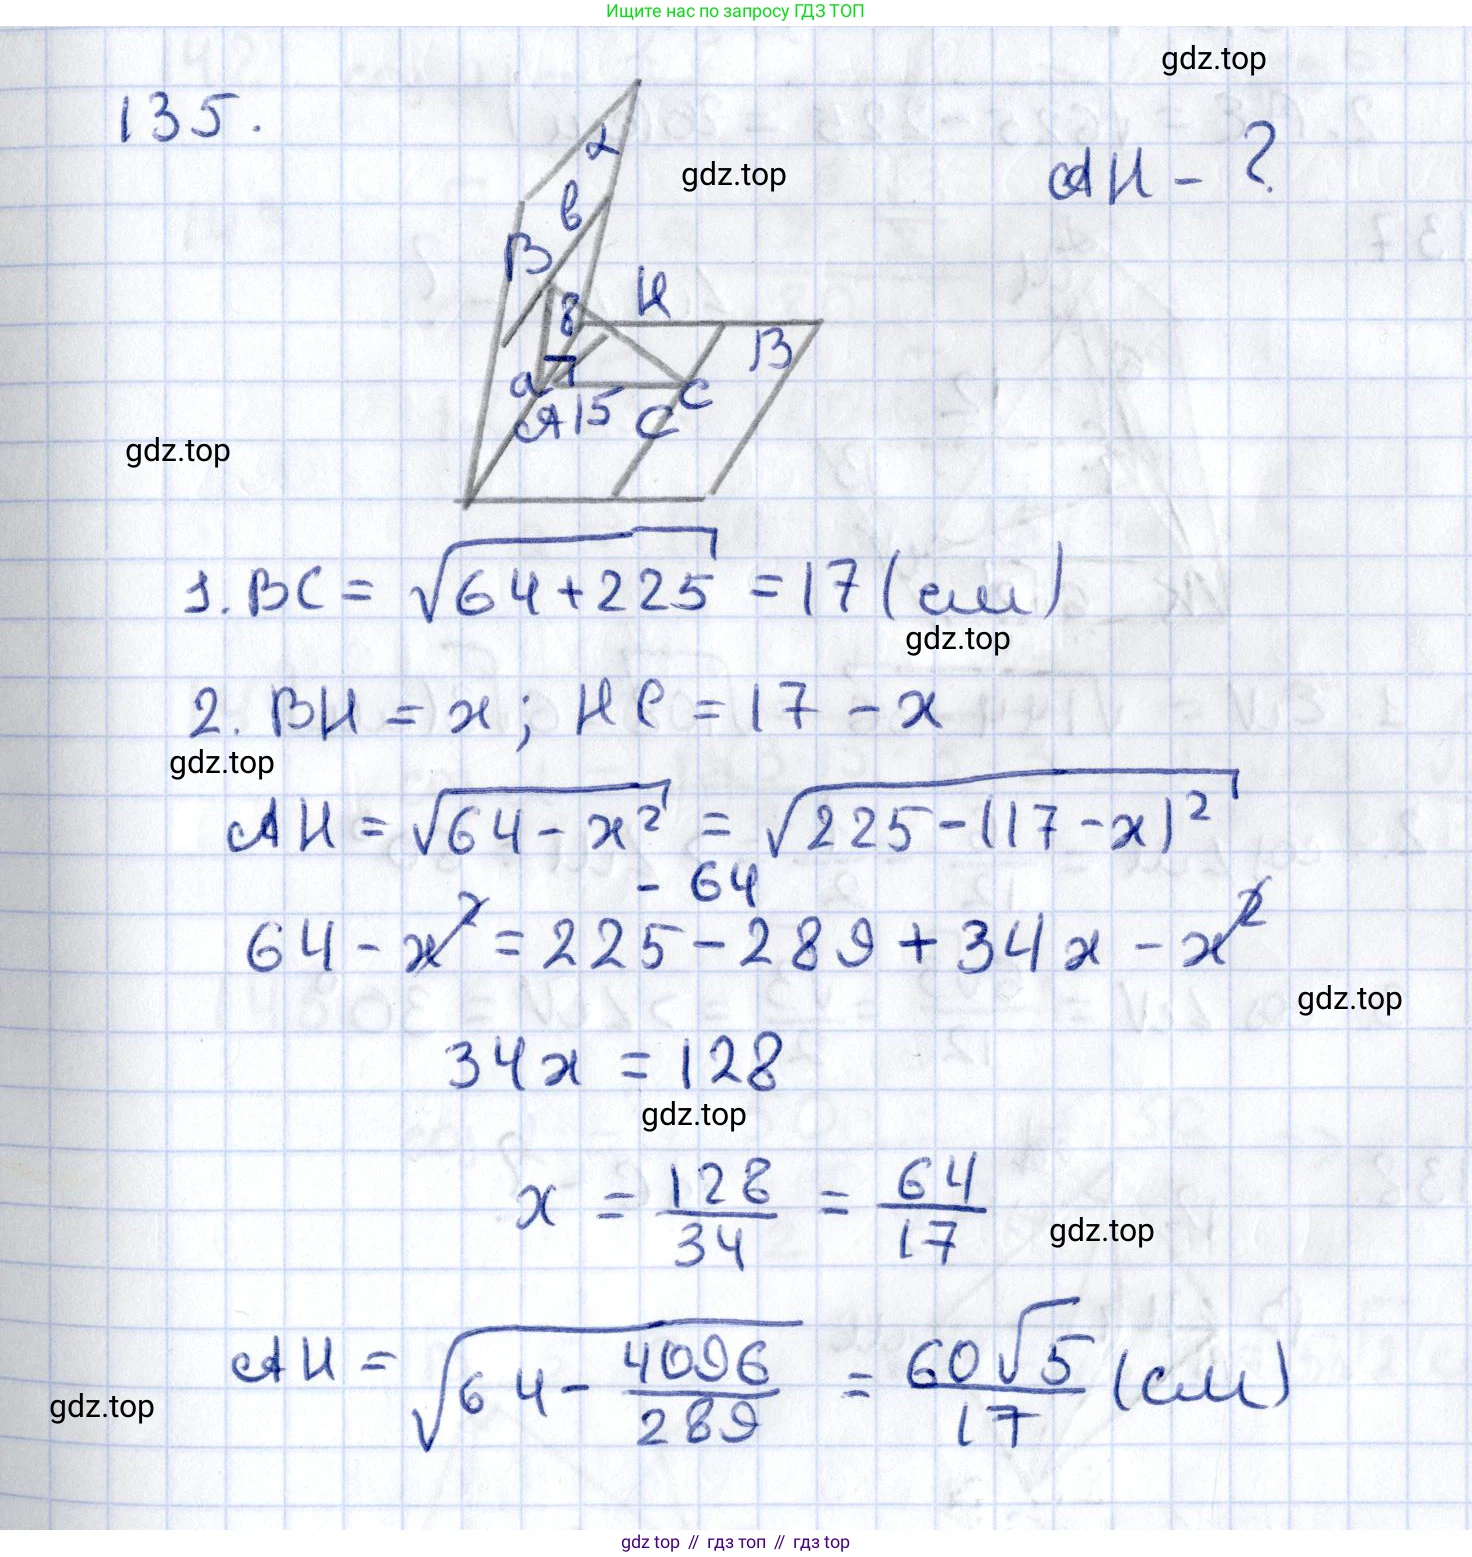 Ищите нас по запросу ГДЗ ТОП
gdz.top
135.
α
gdz.top
AH - ?
b
B
8
H
B
a
A 15
C
C
gdz.top
1. BC = √64+225 = 17 (см)
gdz.top
2. BH = x; HC = 17 - x
gdz.top
AH = √64 - x² = √225 - (17 - x)²
- 64
64 - x² = 225 - 289 + 34x - x²
gdz.top
34x = 128
gdz.top
x = 128/34 = 64/17
gdz.top
AH = √64 - 4096/289 = 60√5/17 (см)
gdz.top
gdz top // гдз топ // гдз top